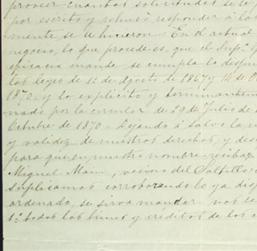 proveer cuantas solicitudes se le
por escrito y rehusó responder á las
mente se le hicieron. En el actual
negocio, lo que procede es, que el Supr
se cumpla lo dispu
las leyes de 12 de Agosto de 1867 y
1872 y lo explícito y terminantem
por la circular de 24 de Julio de
Octubre de 1870. Dejando á salvo la
y validez de nuestros derechos, y
para que en nuestro nombre reciba
Miguel vecino del Saltillo
Suplicamos corroborando lo ya disp
ordenado, se sirva mandar
1º todos los bienes y créditos de los